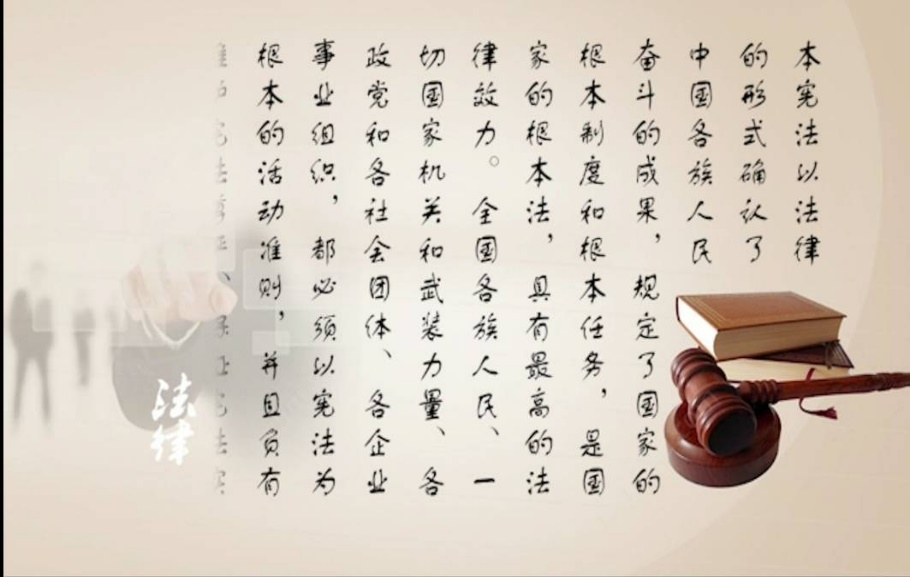 本宪法以法律
的形式确认了
中国各族人民
奋斗的成果，规定了国家的
根本制度和根本任务，是国
家的根本法，具有最高的法
律效力。全国各族人民、一
切国家机关和武装力量、各
政党和各社会团体、各企业
事业组织，都必须以宪法为
根本的活动准则，并且负有
法律